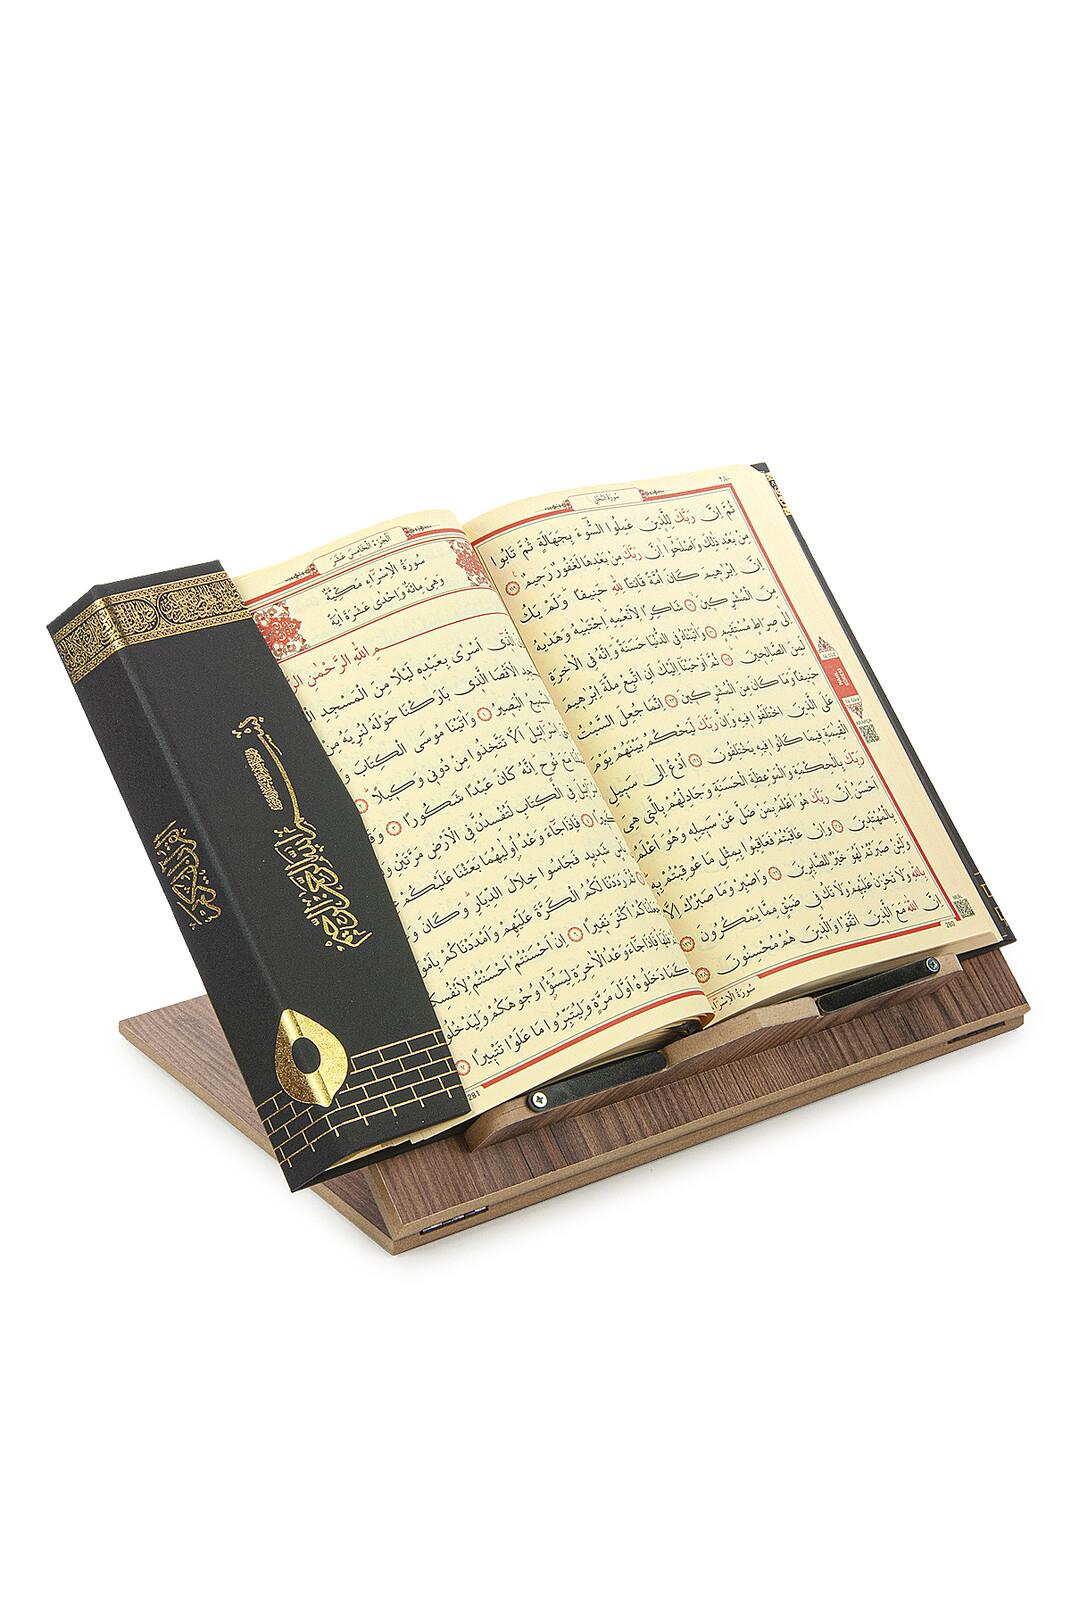 ٢٨٠
سُورَةُ النَّحْلِ
ثُمَّ اِنَّ رَبَّكَ لِلَّذٖينَ عَمِلُوا السُّٓوءَ بِجَهَالَةٍ ثُمَّ تَابُوا
مِنْ بَعْدِ ذٰلِكَ وَاَصْلَحُٓوا اِنَّ رَبَّكَ مِنْ بَعْدِهَا لَغَفُورٌ رَحٖيمٌ ﴿١١٩﴾
اِنَّ اِبْرٰهٖيمَ كَانَ اُمَّةً قَانِتًا لِلّٰهِ حَنٖيفًا وَلَمْ يَكُ
مِنَ الْمُشْرِكٖينَ ﴿١٢٠﴾ شَاكِرًا لِاَنْعُمِهِ اِجْتَبٰيهُ وَهَدٰيهُ
اِلٰى صِرَاطٍ مُسْتَقٖيمٍ ﴿١٢١﴾ وَاٰتَيْنَاهُ فِي الدُّنْيَا حَسَنَةً وَاِنَّهُ فِي الْاٰخِرَةِ
لَمِنَ الصَّالِحٖينَ ﴿١٢٢﴾ ثُمَّ اَوْحَيْنَٓا اِلَيْكَ اَنِ اتَّبِعْ مِلَّةَ اِبْرٰهٖيمَ
حَنٖيفًا وَمَا كَانَ مِنَ الْمُشْرِكٖينَ ﴿١٢٣﴾ اِنَّمَا جُعِلَ السَّبْتُ
عَلَى الَّذٖينَ اخْتَلَفُوا فٖيهِ وَاِنَّ رَبَّكَ لَيَحْكُمُ بَيْنَهُمْ يَوْمَ
الْقِيٰمَةِ فٖيمَا كَانُوا فٖيهِ يَخْتَلِفُونَ ﴿١٢٤﴾ اُدْعُ اِلٰى سَبٖيلِ
رَبِّكَ بِالْحِكْمَةِ وَالْمَوْعِظَةِ الْحَسَنَةِ وَجَادِلْهُمْ بِالَّتٖي هِيَ
اَحْسَنُ اِنَّ رَبَّكَ هُوَ اَعْلَمُ بِمَنْ ضَلَّ عَنْ سَبٖيلِهٖ وَهُوَ اَعْلَمُ
بِالْمُهْتَدٖينَ ﴿١٢٥﴾ وَاِنْ عَاقَبْتُمْ فَعَاقِبُوا بِمِثْلِ مَا عُوقِبْتُمْ بِهٖ
وَلَئِنْ صَبَرْتُمْ لَهُوَ خَيْرٌ لِلصَّابِرٖينَ ﴿١٢٦﴾ وَاصْبِرْ وَمَا صَبْرُكَ اِلَّا
بِاللّٰهِ وَلَا تَحْزَنْ عَلَيْهِمْ وَلَا تَكُ فٖي ضَيْقٍ مِمَّا يَمْكُرُونَ ﴿١٢٧﴾
اِنَّ اللّٰهَ مَعَ الَّذٖينَ اتَّقَوْا وَالَّذٖينَ هُمْ مُحْسِنُونَ ﴿١٢٨﴾
سُورَةُ الْاِسْرَٓاءِ
280
اَلْجُزْءُ الْخَامِسَ عَشَرَ
سُورَةُ الْاِسْرَٓاءِ مَكِّيَّةٌ
وَهِيَ مِائَةٌ وَاِحْدٰى عَشْرَةَ اٰيَةً
بِسْمِ اللّٰهِ الرَّحْمٰنِ
الَّذٖٓي اَسْرٰى بِعَبْدِهٖ لَيْلًا مِنَ الْمَسْجِدِ
الْاَقْصَا الَّذٖي بَارَكْنَا حَوْلَهُ لِنُرِيَهُ مِنْ
السَّمٖيعُ الْبَصٖيرُ ﴿١﴾ وَاٰتَيْنَا مُوسَى الْكِتَابَ
اِسْرَٓائٖيلَ اَلَّا تَتَّخِذُوا مِنْ دُونٖي وَكٖيلًا ﴿٢﴾
مَعَ نُوحٍ اِنَّهُ كَانَ عَبْدًا شَكُورًا ﴿٣﴾
فِي الْكِتَابِ لَتُفْسِدُنَّ فِي الْاَرْضِ مَرَّتَيْنِ
﴿٤﴾ فَاِذَا جَٓاءَ وَعْدُ اُولٰيهُمَا بَعَثْنَا عَلَيْكُمْ
شَدٖيدٍ فَجَاسُوا خِلَالَ الدِّيَارِ وَكَانَ
﴿٥﴾ ثُمَّ رَدَدْنَا لَكُمُ الْكَرَّةَ عَلَيْهِمْ وَاَمْدَدْنَاكُمْ
وَجَعَلْنَاكُمْ اَكْثَرَ نَفٖيرًا ﴿٦﴾ اِنْ اَحْسَنْتُمْ اَحْسَنْتُمْ لِاَنْفُسِكُمْ
فَاِذَا جَٓاءَ وَعْدُ الْاٰخِرَةِ لِيَسُٓوؤُ۫ا وُجُوهَكُمْ وَلِيَدْخُلُوا
كَمَا دَخَلُوهُ اَوَّلَ مَرَّةٍ وَلِيُتَبِّرُوا مَا عَلَوْا تَتْبٖيرًا ﴿٧﴾
281